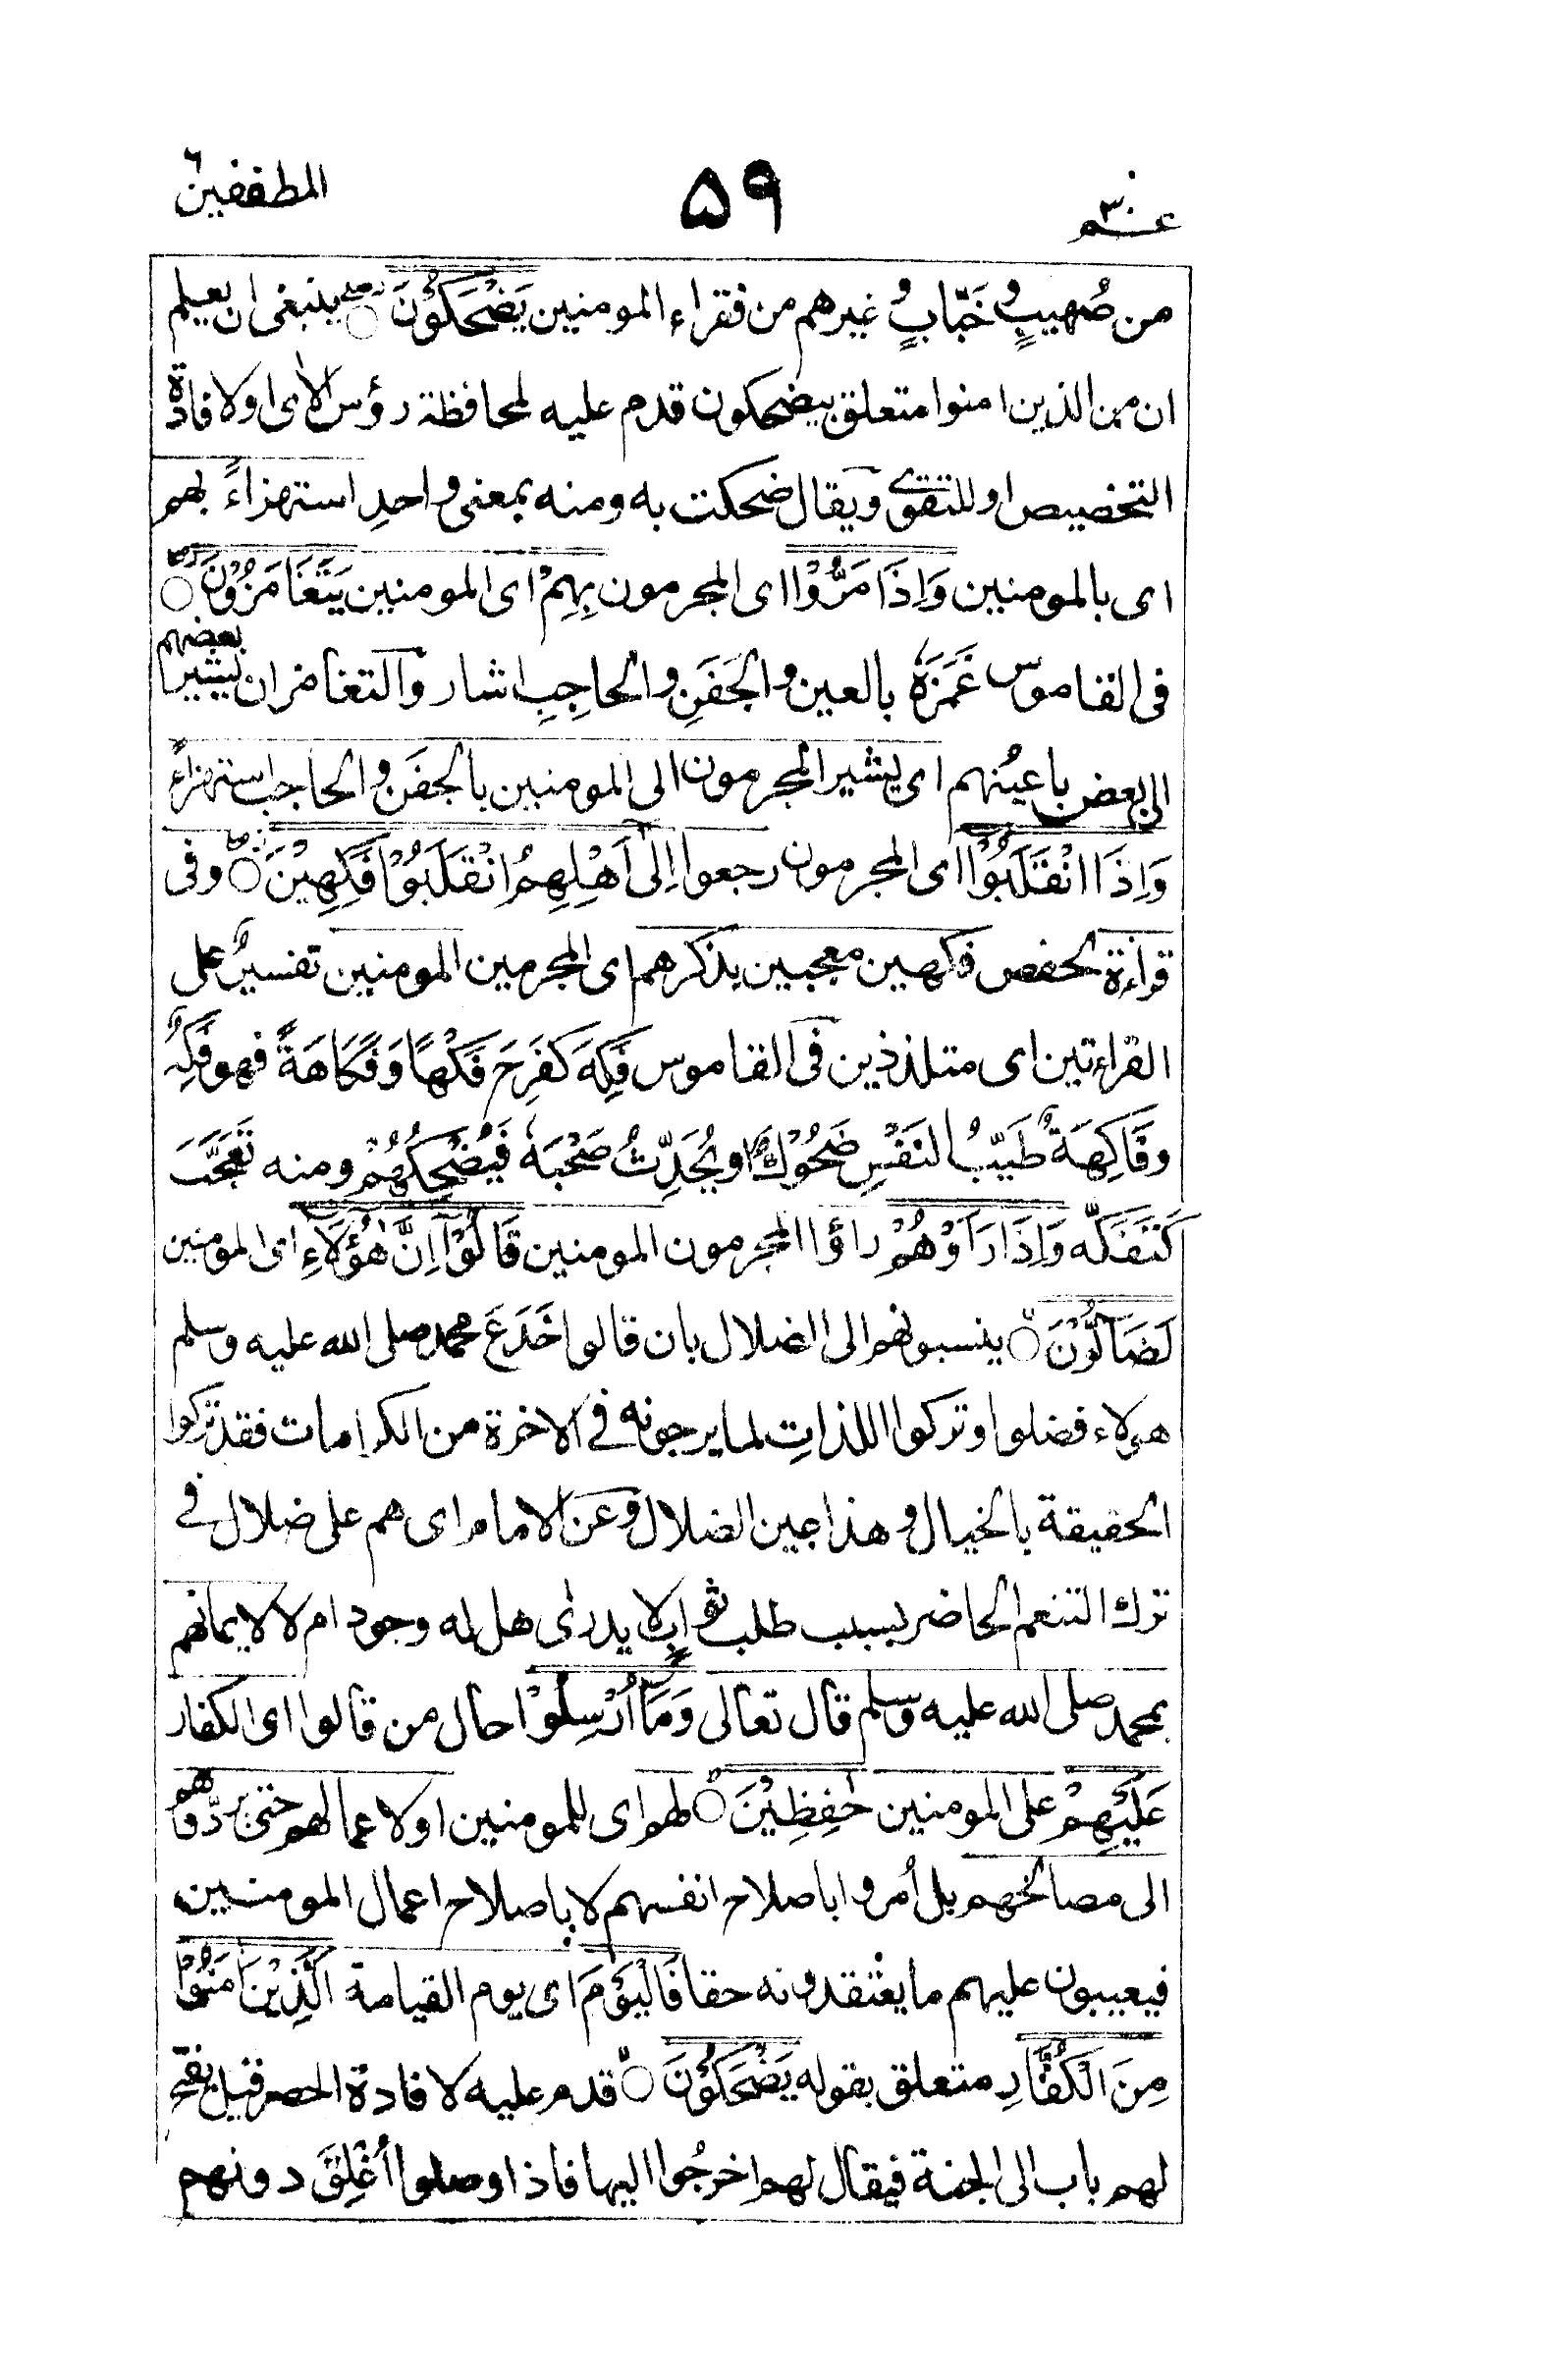 عم ٣٠ ۵۹ المطففین ٦
من صُهيبٍ وخَبّابٍ وغيرهم من فقراء المومنين يَضْحَكُوْنَ ○ ينبغى ان يعلم
ان من الذين امنوا متعلق بيضحكون قدم عليه لمحافظة رؤس الاٰى او لافادة
التخصيص او للتقوى ويقال ضحكت به ومنه بمعنى واحدٍ استهزاءً بهم
اى بالمومنين وَاِذَا مَرُّوْا اى المجرمون بِهِمْ اى المومنين يَتَغَامَزُوْنَ ○
فى القاموس غَمَزَهٗ بالعين والجَفَنِ والحاجِبِ اشار والتغامز ان يشير بعضهم
الى بعض باعيُنهم اى يشير المجرمون الى المومنين بالجفن والحاجب استهزاءً
وَاِذَا انْقَلَبُوْٓا اى المجرمون رجعوا اِلٰٓى اَهْلِهِمُ انْقَلَبُوْا فَكِهِيْنَ ○ وفى
قراءة الحفص فكهين معجبين بذكرهم اى المجرمين المومنين تفسيرٌ على
القراءتين اى متلذذين فى القاموس فَكِهَ كَفَرِحَ فَكَهًا وَفَكَاهَةً فهو فَكِهٌ
وفَاكِهَةٌ طَيّبُ النَفَسِ ضَحُوْكٌ او يُحَدِّثُ صَحْبَهٗ فَيُضْحِكُهُمْ ومنه تَعَجَّبَ
كَتَفَكَّه وَاِذَا رَاَوْهُمْ راؤا المجرمون المومنين قَالُوْٓا اِنَّ هٰٓؤُلَاۤءِ اى المومنين
لَضَاۤلُّوْنَ ○ ينسبونهم الى الضلال بان قالوا خَدَعَ محمد صلى الله عليه وسلم
هولاء فضلوا وتركوا اللذاتِ لما يرجونه فى الاخرة من الكرامات فقد تركوا
الحقيقة بالخيال وهذا عين الضلال وعن الامام اى هم على ضلال فى
ترك التنعم الحاضر بسبب طلب ثوابٍ لا يدرٰى هل له وجود ام لا لايمانهم
بمحمد صلى الله عليه وسلم قال تعالى وَمَآ اُرْسِلُوْا حال من قالوا اى الكفار
عَلَيْهِمْ على المومنين حٰفِظِيْنَ ○ لهم اى للمومنين او لاعمالهم حتى يردّوهم
الى مصالحهم بل اُمروا باصلاح انفسهم لا باصلاح اعمال المومنين
فيعيبون عليهم ما يعتقدونه حقا فَالْيَوْمَ اى يوم القيامة الَّذِيْنَ اٰمَنُوْا
مِنَ الْكُفَّارِ متعلق بقوله يَضْحَكُوْنَ ○ قدم عليه لافادة الحصر قيل يفتح
لهم باب الى الجنة فيقال لهم اخرجُوا اليها فاذا وصلوا اُغْلِقَ دونهم